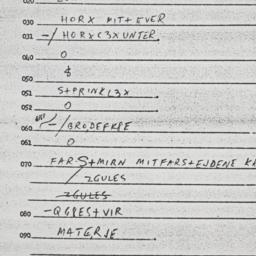 020
030 HORX MIT+EVER
031 -/HORX(3XUNTER.
040 O
$
050
051 S+PRINKL3X
052 O
060 -/BRODEFKPE
061 O
070 FARS+MIRN MITFARS+EJDENE
2GULES
2GULES
080 -QGPES+VIR
090 MATERJE